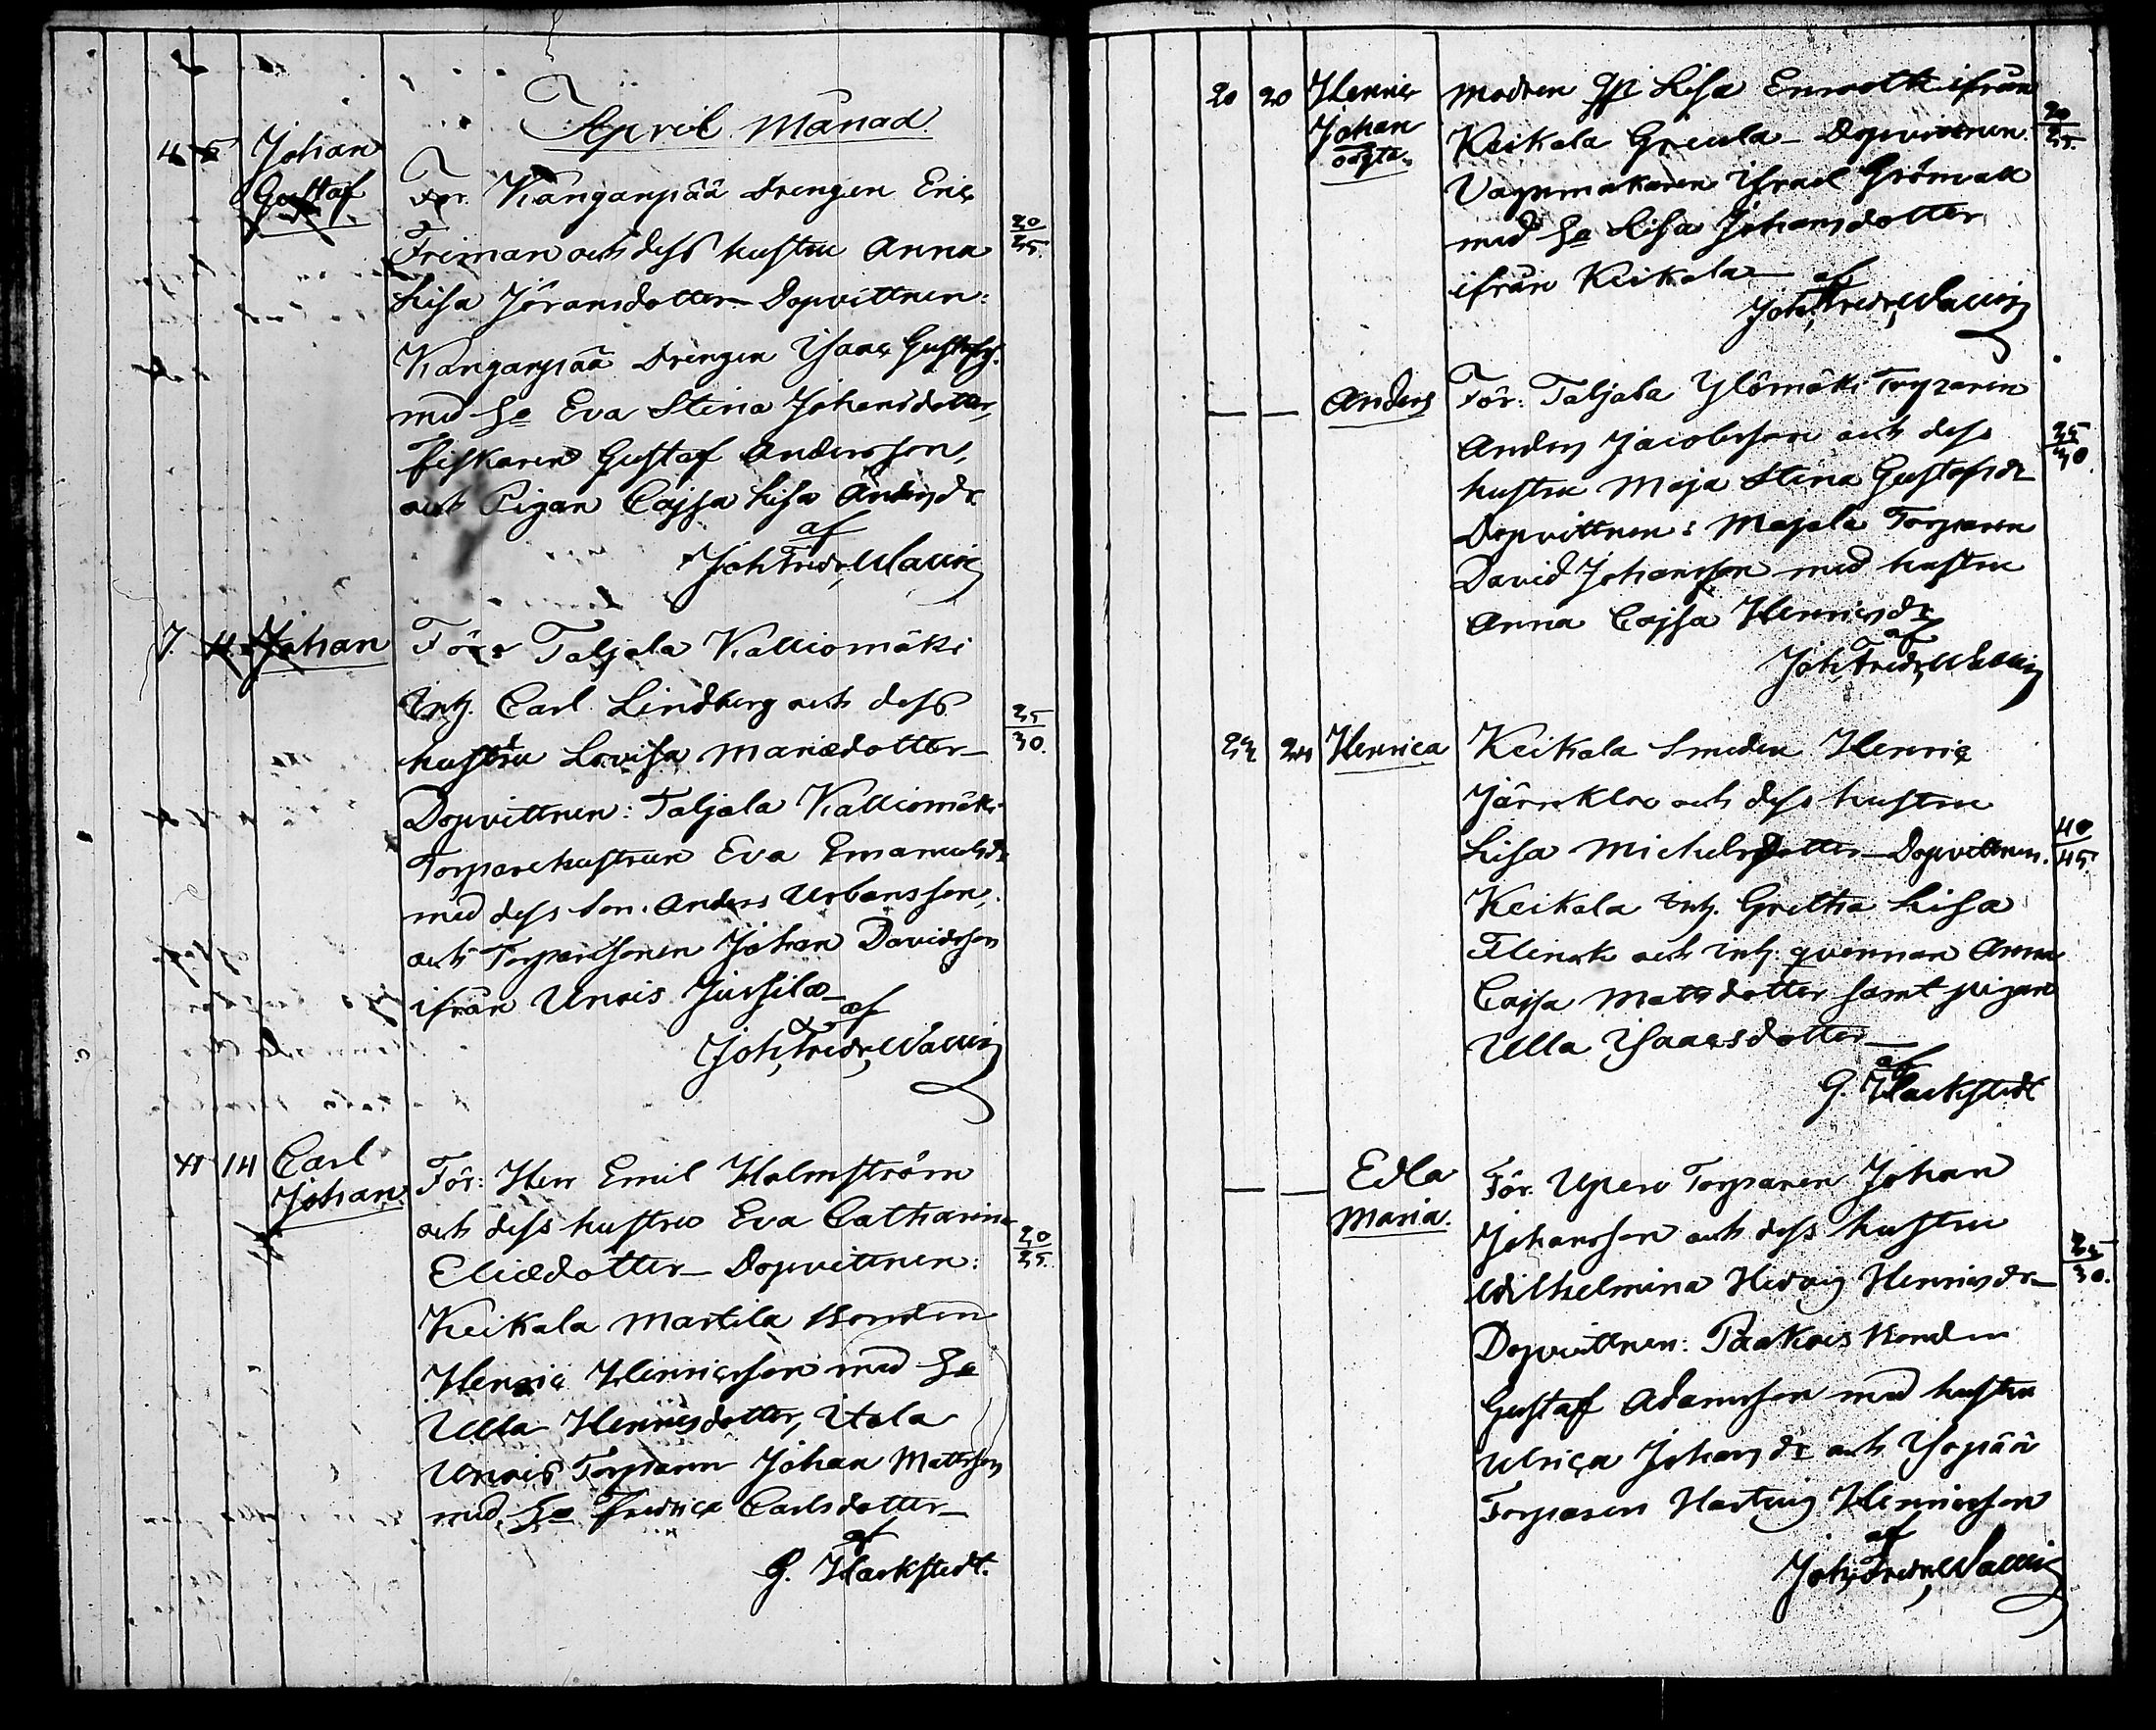 April Månad.
4 5 Johan
Gustaf
För. Kanganpää Drengen Eric
20/25.
Friman och dess hustru Anna
Lisa Jöransdotter – Dopvittnen:
Kanganpää Drengen Isaac Gustafss.
med Ha Eva Stina Johansdotter,
Fiskaren Gustaf Andersson,
och Pigan Cajsa Lisa Andersdr
af
Joh. Fredr. Wallin
7. 11 Johan
För: Taljala Kalliomäki
Inh. Carl Lindberg och dess
25/30.
hustru Lovisa Mariædotter –
Dopvittnen: Taljala Kalliomäki
Torparehustrun Eva Emanuelsdr
med dess Son. Anders Urbansson,
och Torparesonen Johan Davidsson
ifrån Unois Jussila –
af
Joh. Fredr. Wallin
11 14 Carl
Johan
För: Herr Emil Holmström
och dess hustru Eva Catharina
20/25.
Eliædotter – Dopvittnen:
Keikala Martila Bonden
Henric Henricsson med Ha
Ulla Henricsdotter, Itala
Unois Torparen Johan Mattsson
med Ha Fredrica Carlsdotter –
af
G. Hackstedt.
20 20 Henric
Johan
oägta.
modren Lisa Enrooth ifrån
20/25
Keikala Greula – Dopvittnen.
Vagnmakaren Israel Gröman
med Ha Lisa Johansdotter
ifrån Keikala –
af
Joh. Fredr. Wallin
— — Anders
För: Taljala Ylömäki Torparen
Anders Jacobsson och dess
25/30.
hustru Maja Stina Gustafsdr
Dopvittnen: Majala Torparen
David Johansson med hustru
Anna Cajsa Henricsdr
af
Joh. Fredr. Wallin
22 24 Henrica
Keikala Smeden Henric
Järnklo och dess hustru
Lisa Michelsdotter – Dopvittnen.
40/45.
Keikala Inh. Gretha Lisa
Flinck och Inh. qvennan Anna
Cajsa Mattsdotter samt pigan
Ulla Isaacsdotter –
af
G. Hackstedt
— — Edla
Maria.
För. Upen Torparen Johan
Johansson och dess hustru
25/30.
Wilhelmina Hedvig Henricsdr –
Dopvittnen: Paakois Bonden
Gustaf Adamsson med hustru
Ulrica Johansdr och Isopää
Torparen Hartvig Henricsson
af
Joh. Fredr. Wallin